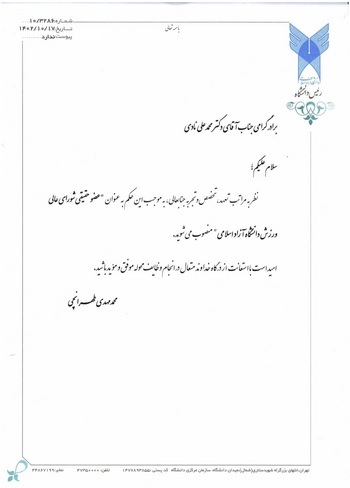 باسمه تعالی
شماره: ۱۰/۳۲۸۶
تاریخ: ۱۴۰۲/۱۰/۱۷
پیوست: ندارد
رئیس دانشگاه
برادر گرامی جناب آقای دکتر محمد علی نادی
سلام علیکم؛
نظر به مراتب تعهد، تخصص و تجربه جنابعالی، به موجب این حکم به عنوان "عضو حقیقی شورای عالی
ورزش دانشگاه آزاد اسلامی" منصوب می شوید.
امید است با استعانت از درگاه خداوند متعال در انجام وظایف محوله موفق و مؤید باشید.
محمد مهدی طهرانچی
تهران، انتهای بزرگراه شهید ستاری (شمال) میدان دانشگاه، سازمان مرکزی دانشگاه کد پستی: ۱۴۷۷۸۹۳۸۵۵ تلفن: ۴۷۳۵۰۰۰۰